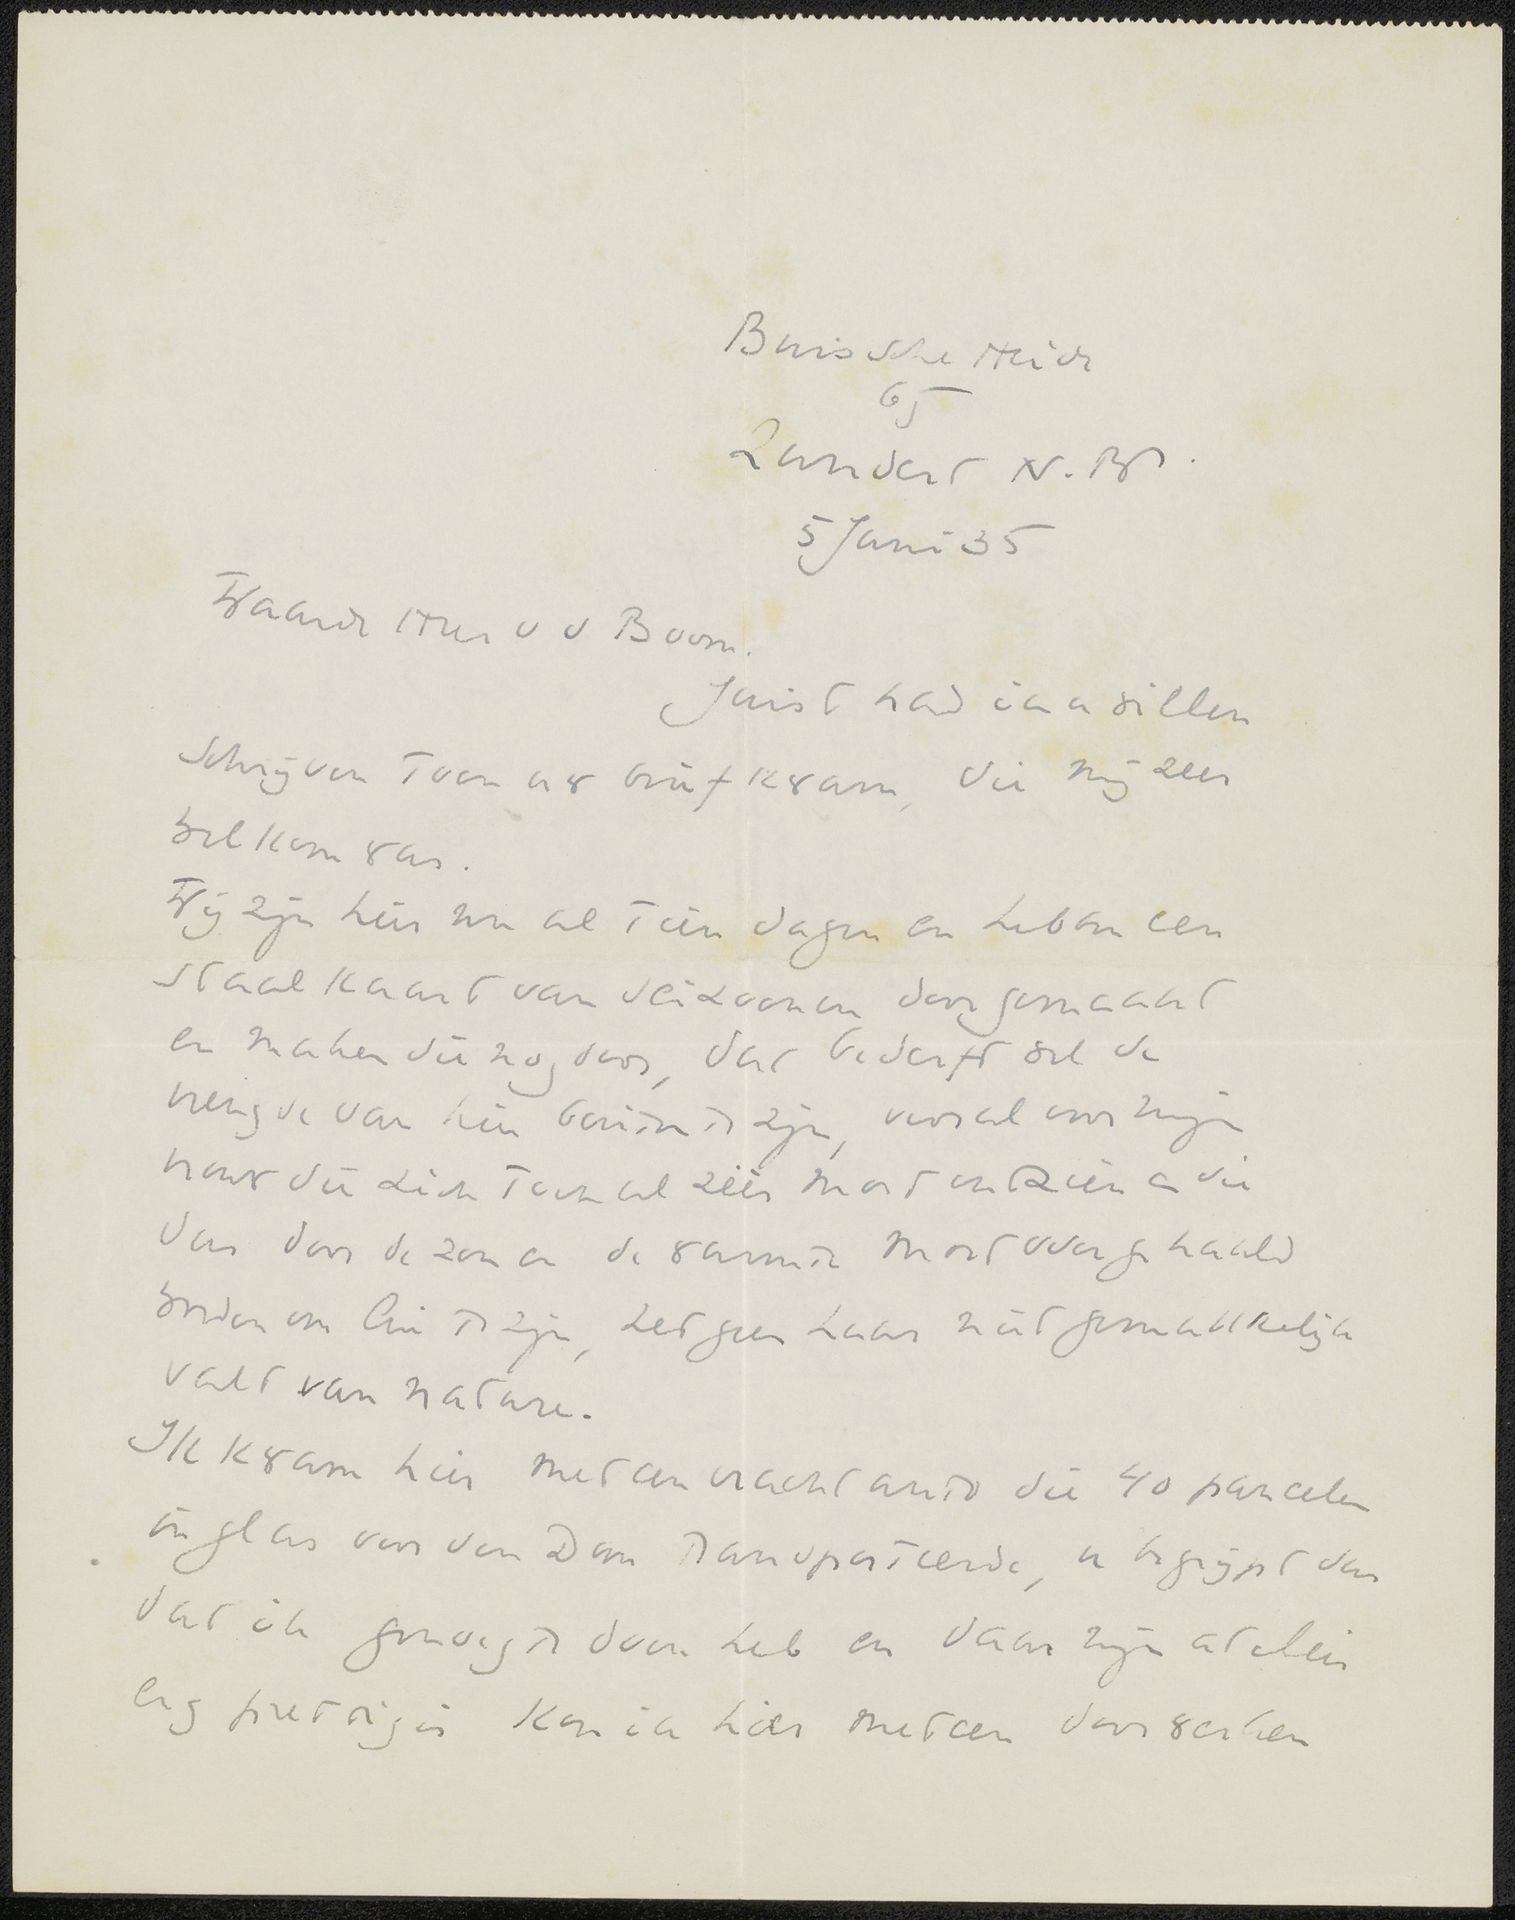 Buissche Heide
65
Zundert N.Br.
5 Juni 35
Waarde Heer v d Boom.
Juist had ik u willen
schrijven toen uw brief kwam, die mij zeer
welkom was.
Wij zijn hier nu al tien dagen en hebben een
staalkaart van seizoenen doorgemaakt
en maken die nog door, dat bederft wel de
vreugde van hier buiten te zijn, vooral voor mijn
vrouw die zich toch al zéér moet ontzien en die
dus door de zon en de warmte moet overgehaald
worden om lui te zijn, hetgeen haar niet gemakkelijk
valt van nature.
Ik kwam hier met een vrachtauto die 40 panelen
in glas voor den Dom transporteerde, u begrijpt dus
dat ik genoeg te doen heb en daar mijn atelier
erg prettig is kon ik hier meteen doorwerken